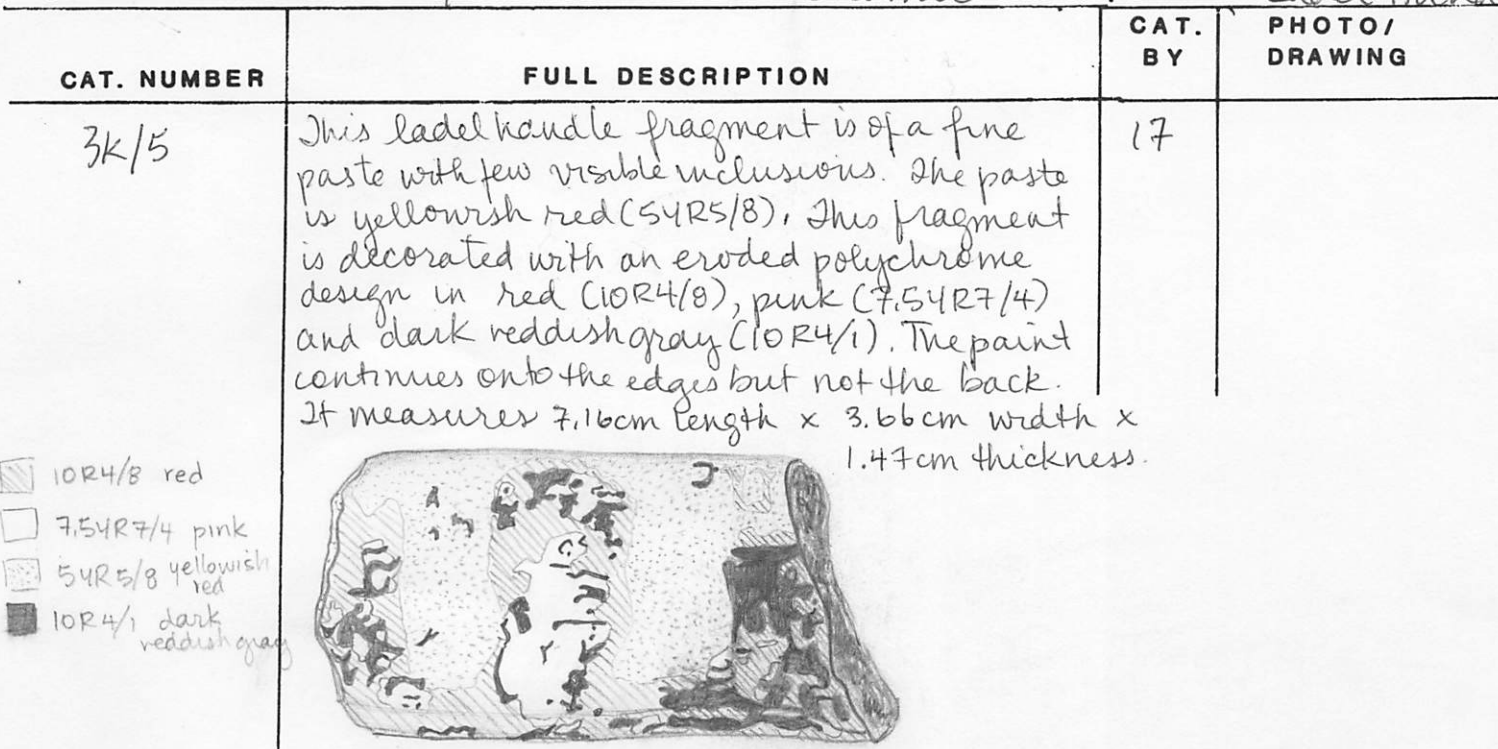 CAT. NUMBER
FULL DESCRIPTION
CAT. BY
PHOTO/ DRAWING
3K/5
17
This ladel handle fragment is of a fine
paste with few visible inclusions. The paste
is yellowish red (5YR5/8). This fragment
is decorated with an eroded polychrome
design in red (10R4/8), pink (7.5YR7/4)
and dark reddish gray (10R4/1). The paint
continues onto the edges but not the back.
It measures 7.16cm length x 3.66cm width x
1.47cm thickness.
10R4/8 red
7.5YR7/4 pink
5YR5/8 yellowish
red
10R4/1 dark
reddish gray